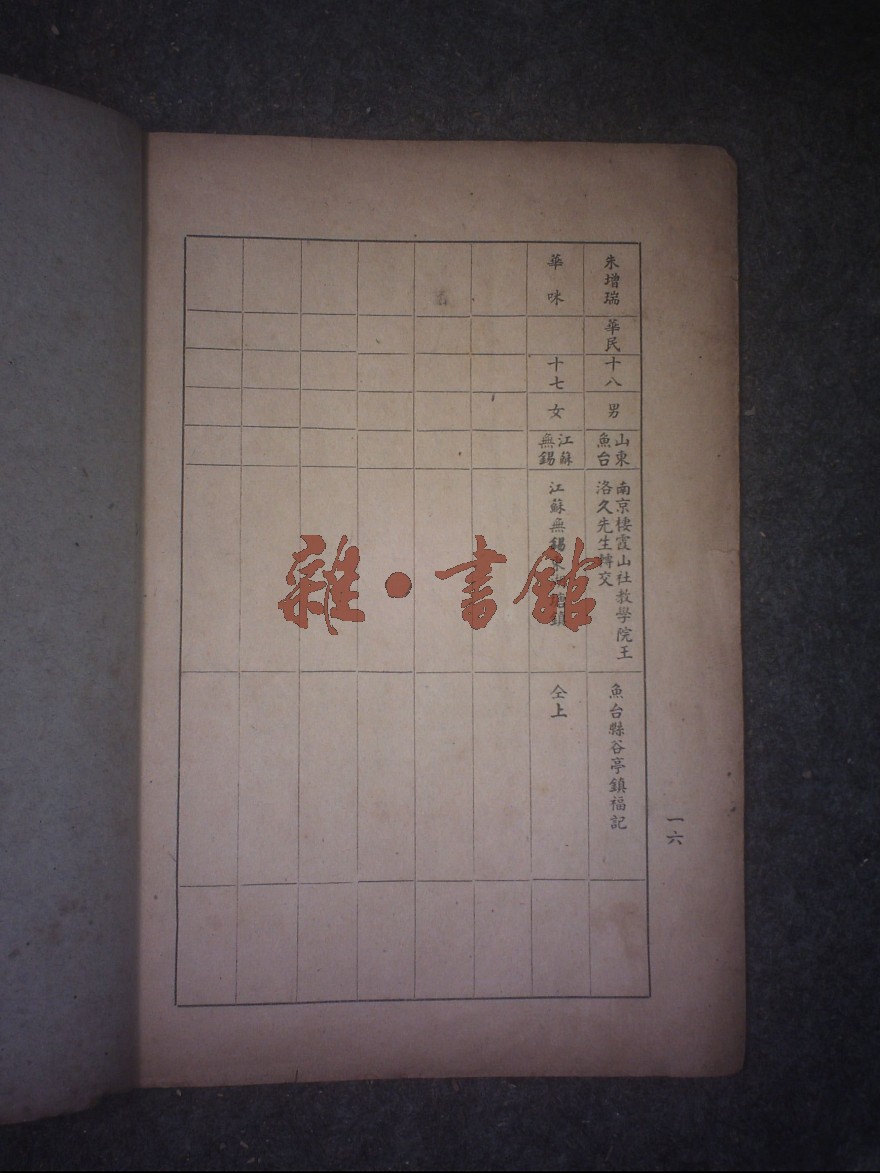 朱增瑞
華民
十八
男
山東
魚台
南京棲霞山社教學院王
洛久先生轉交
魚台縣谷亭鎮福記
華咪
十七
女
江蘇
無錫
江蘇無錫東塘鎮
仝上
一六
雜·書館